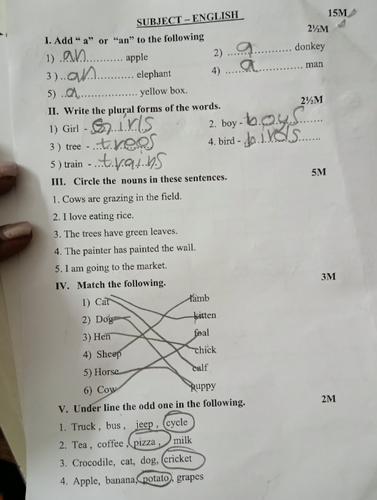 SUBJECT – ENGLISH 15M
I. Add “ a” or “an” to the following 2½M
1) an apple 2) a donkey
3 ) an elephant 4) a man
5) a yellow box.
II. Write the plural forms of the words. 2½M
1) Girl - Girls 2. boy - boys
3 ) tree - trees 4. bird - birds
5 ) train - trains
III. Circle the nouns in these sentences. 5M
1. Cows are grazing in the field.
2. I love eating rice.
3. The trees have green leaves.
4. The painter has painted the wall.
5. I am going to the market.
IV. Match the following. 3M
1) Cat lamb
2) Dog kitten
3) Hen foal
4) Sheep chick
5) Horse calf
6) Cow puppy
V. Under line the odd one in the following. 2M
1. Truck , bus , jeep , cycle
2. Tea , coffee , pizza , milk
3. Crocodile, cat, dog, cricket
4. Apple, banana, potato, grapes